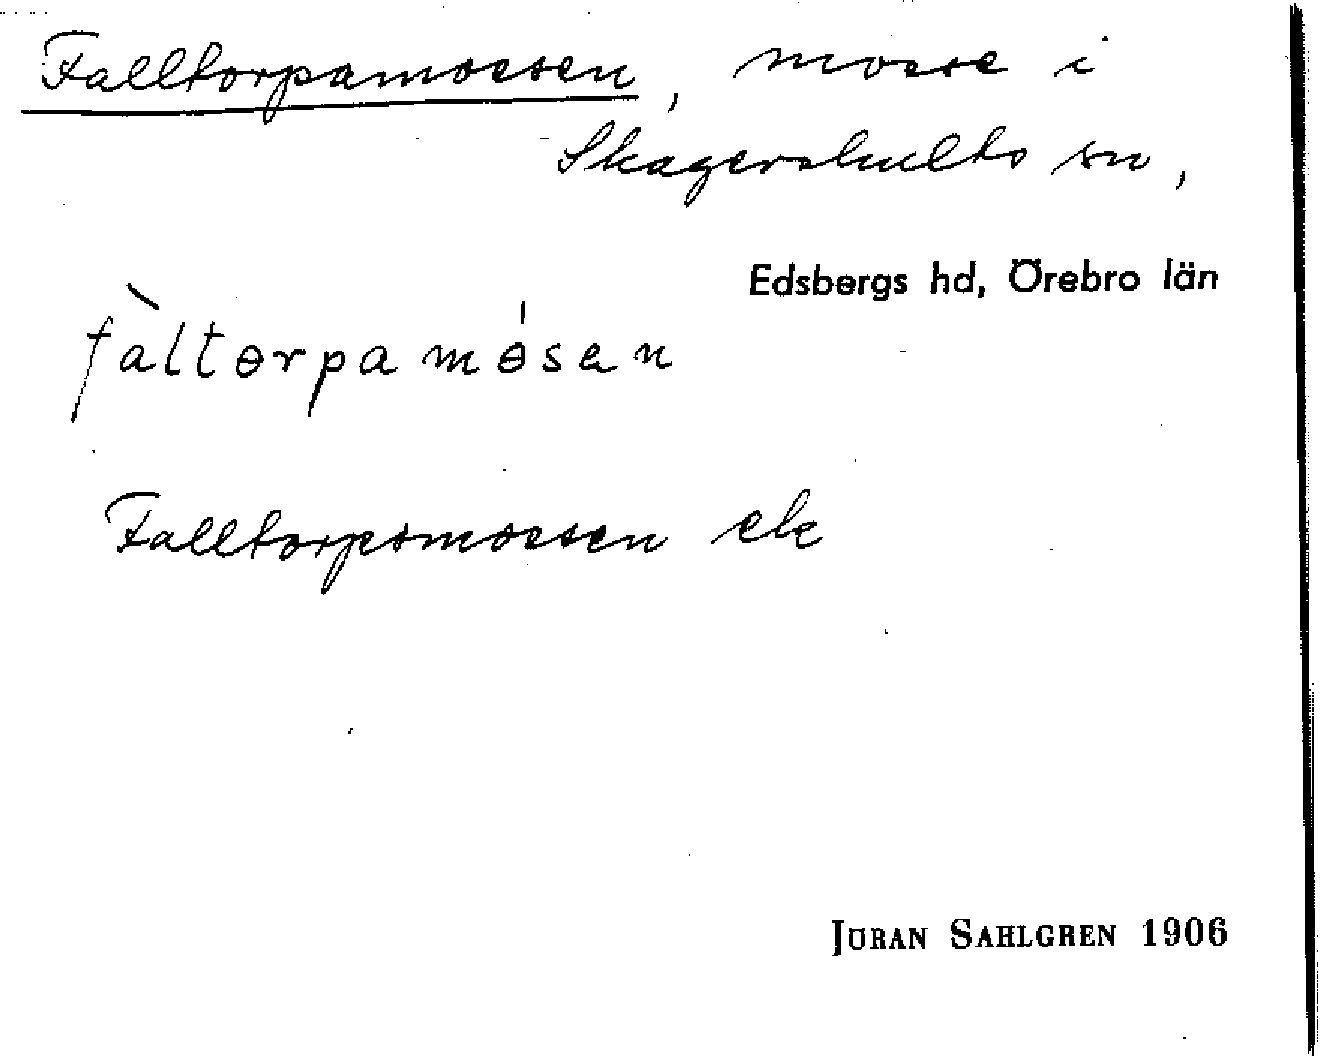 Falltorpamossen, mosse i
Skagershults sn,
Edsbergs hd, Örebro län
fàltɵrpamɵ́sen
Falltorpsmossen ek
JÖRAN SAHLGREN 1906